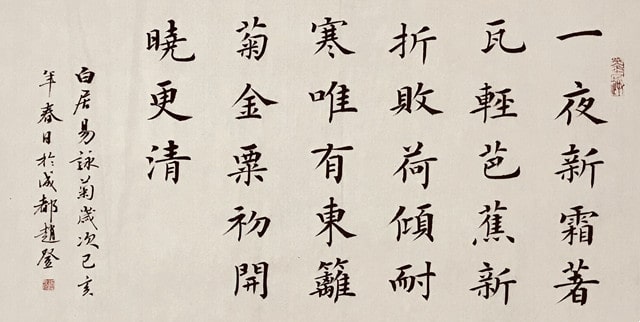 一夜新霜著
瓦輕芭蕉新
折敗荷傾耐
寒唯有東籬
菊金粟初開
曉更清
白居易詠菊歲次己亥
年春日於成都趙登